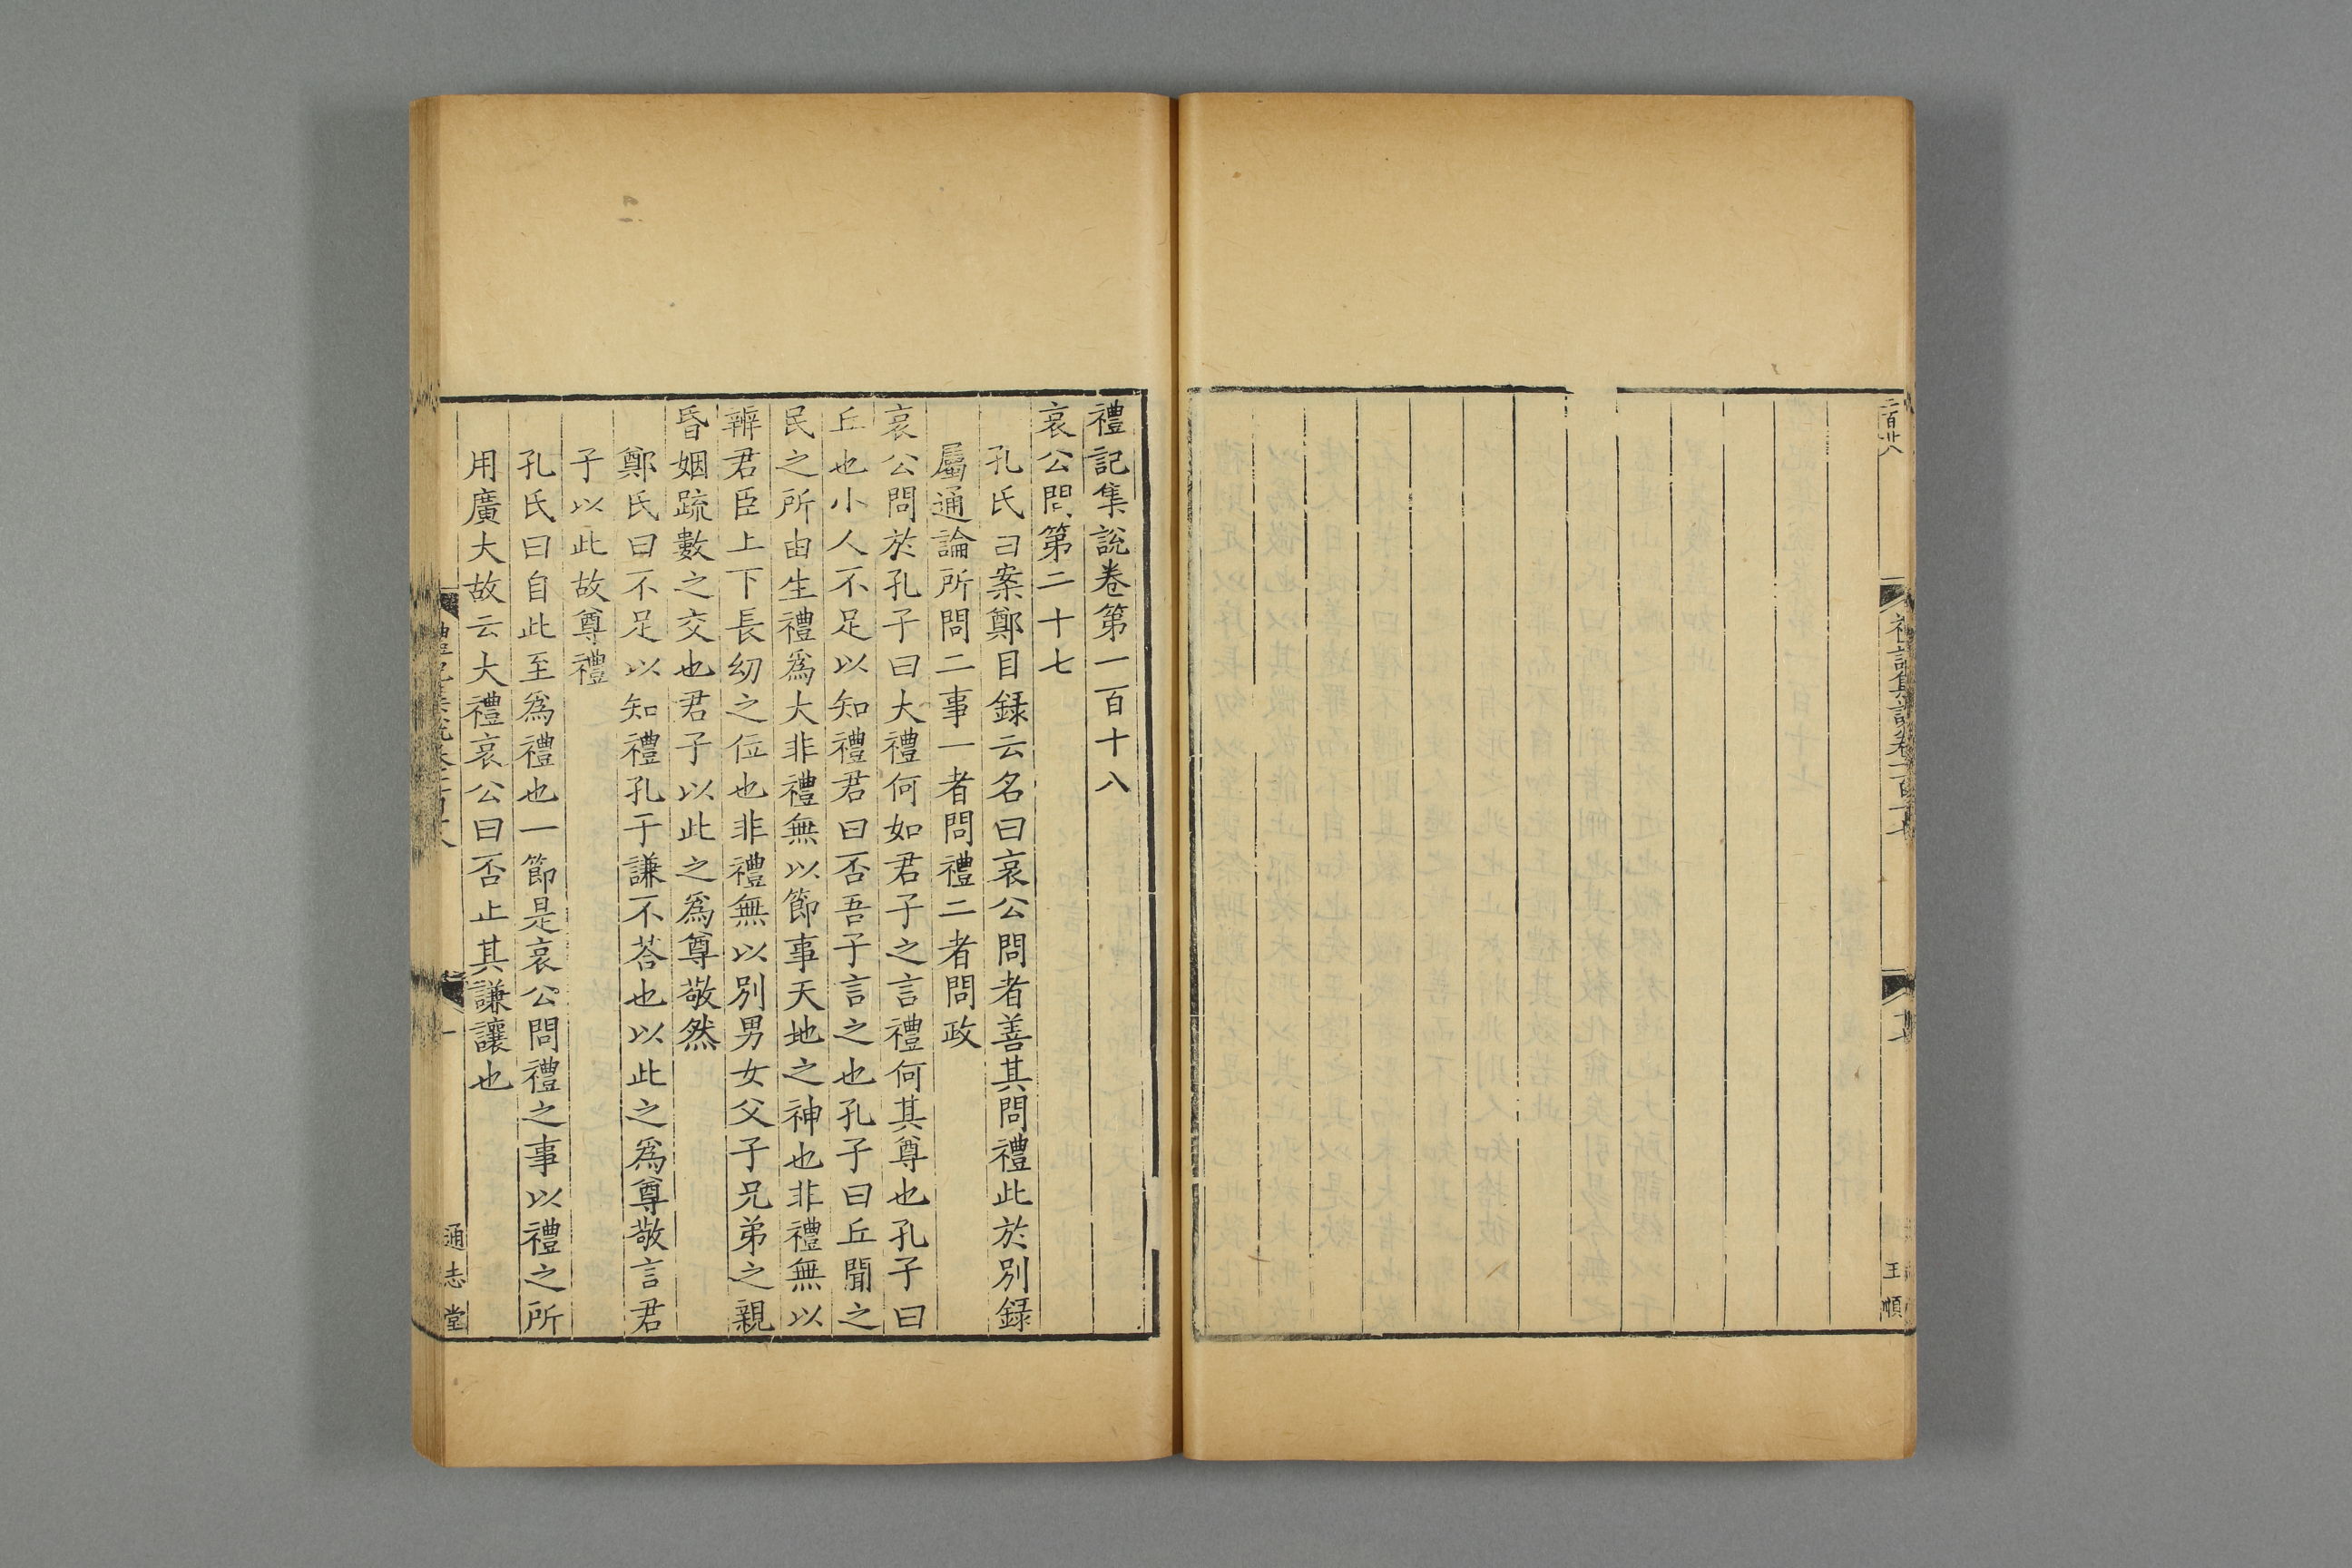 禮記集說卷第一百十八
哀公問第二十七
孔氏曰案鄭目録云名曰哀公問者善其問禮此於別録
屬通論所問二事一者問禮二者問政
哀公問於孔子曰大禮何如君子之言禮何其尊也孔子曰
丘也小人不足以知禮君曰否吾子言之也孔子曰丘聞之
民之所由生禮爲大非禮無以節事天地之神也非禮無以
辨君臣上下長幼之位也非禮無以別男女父子兄弟之親
昏姻疏數之交也君子以此之爲尊敬然
鄭氏曰不足以知禮孔子謙不荅也以此之爲尊敬言君
子以此故尊禮
孔氏曰自此至爲禮也一節是哀公問禮之事以禮之所
用廣大故云大禮哀公曰否止其謙讓也
一
通志堂
禮記集說卷一百十七
王順